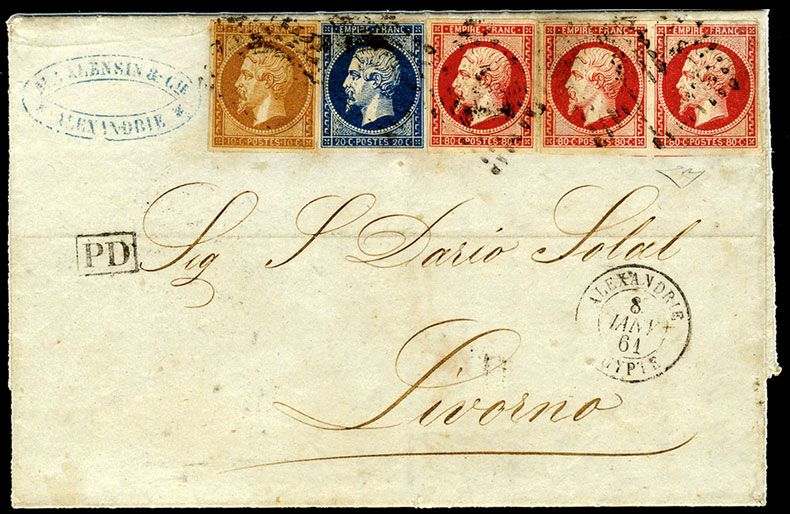 ALENSIN & CIE
ALEXANDRIE
EMPIRE FRANC
10 C. POSTES 10 C.
EMPIRE FRANC
20 C. POSTES 20 C.
EMPIRE FRANC
80 C. POSTES 80 C.
EMPIRE FRANC
80 C. POSTES 80 C.
EMPIRE FRANC
80 C. POSTES 80 C.
PD
Sig S Dario Solal
Livorno
ALEXANDRIE
8
JANV
61
EGYPTE